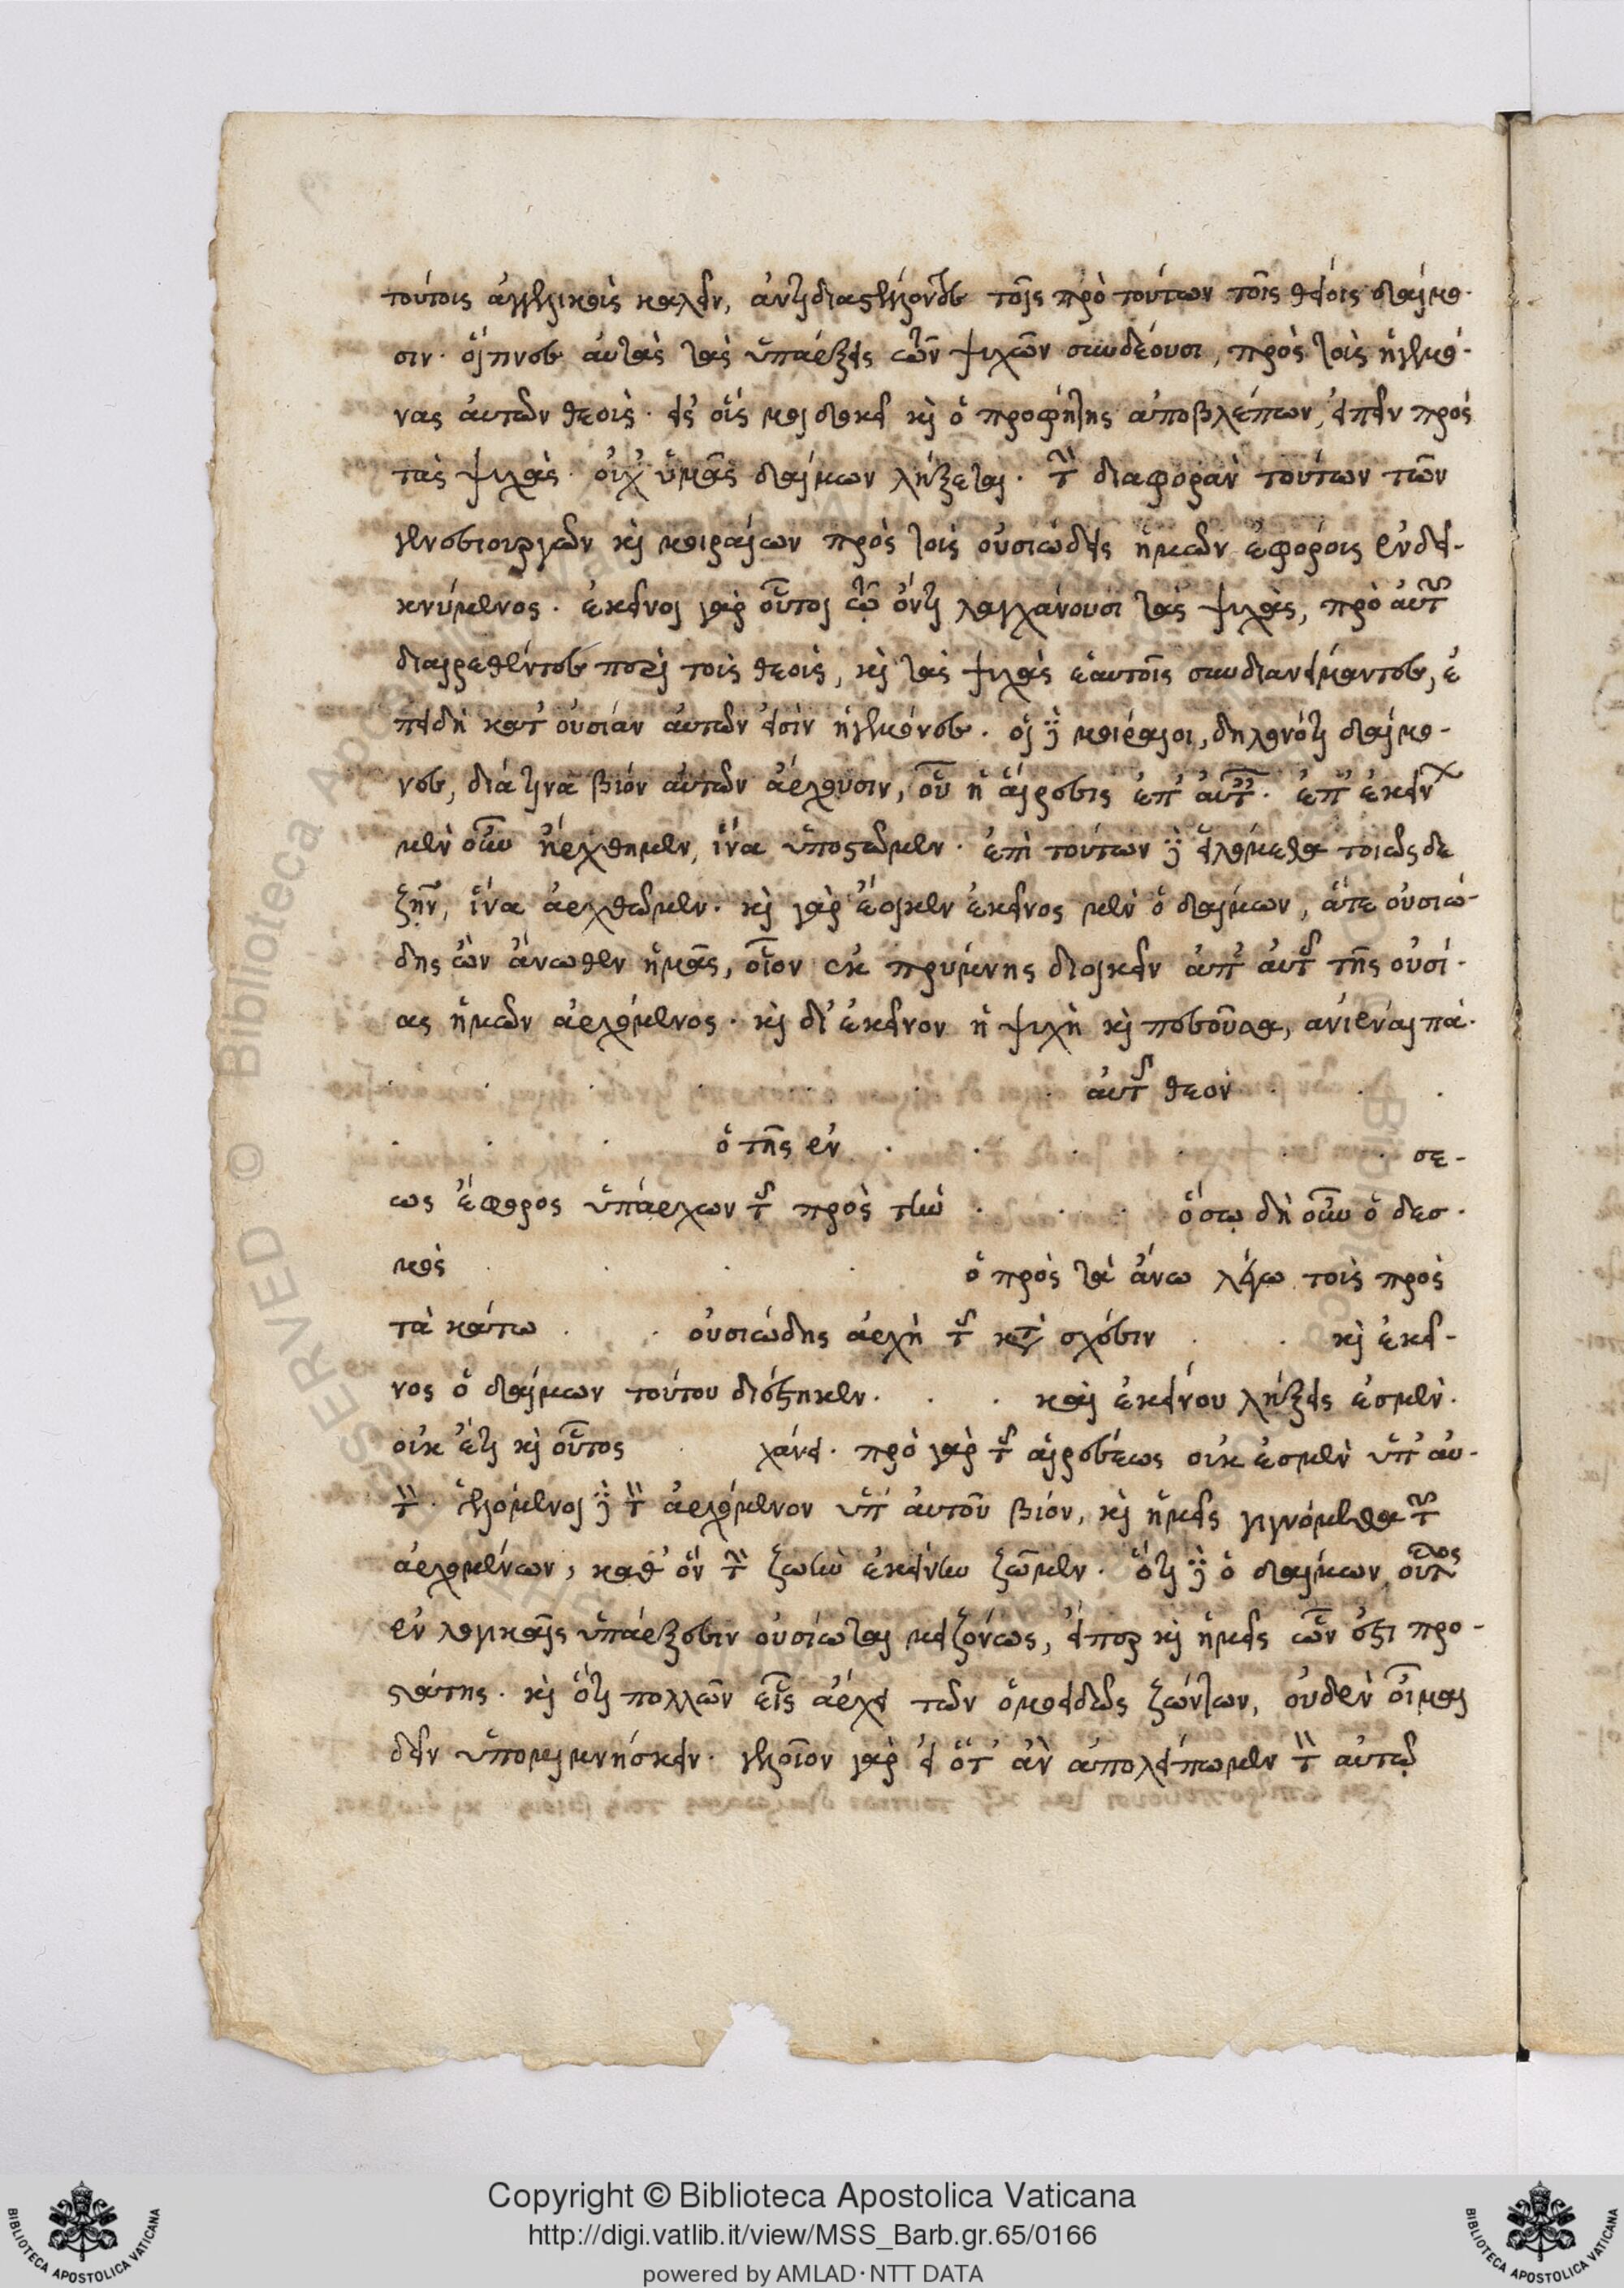 τούτοις ἀγγελικοὺς καλεῖν, ἀντιδιαστέλλοντες τοὺς πρὸ τούτων τοῖς θείοις δαίμο-
σιν. οἵτινες αὐτὰς τὰς ὑπάρξεις τῶν ψυχῶν συνδέουσι, πρὸς τοὺς ἡγεμό-
νας αὐτῶν θεούς. εἰς οὕς μοι δοκεῖ καὶ ὁ προφήτης ἀποβλέπων, εἰπεῖν πρὸς
τὰς ψυχάς. οὐχ ὑμᾶς δαίμων λήξεται. τὴν διαφορὰν τούτων τῶν
γενεσιουργῶν καὶ μοιραίων πρὸς τοὺς οὐσιώδεις ἡμῶν ἐφόρους ἐνδει-
κνύμενος. ἐκεῖνοι γὰρ οὗτοι τῷ ὄντι λαγχάνουσι τὰς ψυχάς, πρὸ αὐτῶν
διαιρεθέντες περὶ τοὺς θεούς, καὶ τὰς ψυχὰς ἑαυτοῖς συνδιανείμαντες, ἐ
πειδὴ κατ' οὐσίαν αὐτῶν εἰσὶν ἡγεμόνες. οἱ δὲ μοιραῖοι, δηλονότι δαίμο-
νες, διά τινα βίον αὐτῶν ἄρχουσιν, οὗ ἡ αἵρεσις ἐπ' αὐταῖς. ἐπ' ἐκείνων
μὲν οὖν ἤρχθημεν, ἵνα ὑποστῶμεν. ἐπὶ τούτων δὲ εἱλόμεθα τοιῶσδε
ζῆν, ἵνα ἀρχθῶμεν. καὶ γὰρ ἔοικεν ἐκεῖνος μὲν ὁ δαίμων, ἅτε οὐσιώ-
δης ὢν ἄνωθεν ἡμᾶς, οἷον ἐκ πρύμνης διοικεῖν ἀπ' αὐτῆς τῆς οὐσί-
ας ἡμῶν ἀρχόμενος. καὶ δι' ἐκεῖνον ἡ ψυχὴ καὶ ποθοῦσα, ἀνιέναι πά-
. . . . . . . αὐτῆς θεὸν . . .
. . . ὁ τῆς ἐν . . . . . . σε-
ως ἔφορος ὑπάρχων τῆς πρὸς τὴν . . . ὅσῳ δὴ οὖν ὁ δεσ-
μὸς . . . . ὁ πρὸς τὰ ἄνω λέγω τοὺς πρὸς
τὰ κάτω . . οὐσιώδης ἀρχὴ τῆς κατὰ σχέσιν . . καὶ ἐκεῖ-
νος ὁ δαίμων τούτου διέστηκεν. . . καὶ ἐκείνου λήξεις ἐσμέν.
οὐκ ἔτι καὶ οὗτος . χάνει. πρὸ γὰρ τῆς αἱρέσεως οὐκ ἐσμὲν ὑπ' αὐ-
τόν. ἑλόμενοι δὲ τὸν ἀρχόμενον ὑπ' αὐτοῦ βίον, καὶ ἡμεῖς γιγνόμεθα τῶν
ἀρχομένων, καθ' ὃν τὴν ζωὴν ἐκείνην ζῶμεν. ὅτι δὲ ὁ δαίμων οὗτος
ἐν λογικαῖς ὑπάρξεσιν οὐσίωται μειζόνως, εἴπερ καὶ ἡμεῖς ὧν ἐστι προ-
στάτης. καὶ ὅτι πολλῶν εἷς ἄρχει τῶν ὁμοειδῶς ζώντων, οὐδὲν οἶμαι
δεῖν ὑπομιμνήσκειν. γελοῖον γὰρ εἰ ὅτ' ἂν ἀπολείπωμεν τὸν αὐτῷ
Copyright © Biblioteca Apostolica Vaticana
http://digi.vatlib.it/view/MSS_Barb.gr.65/0166
powered by AMLAD·NTT DATA